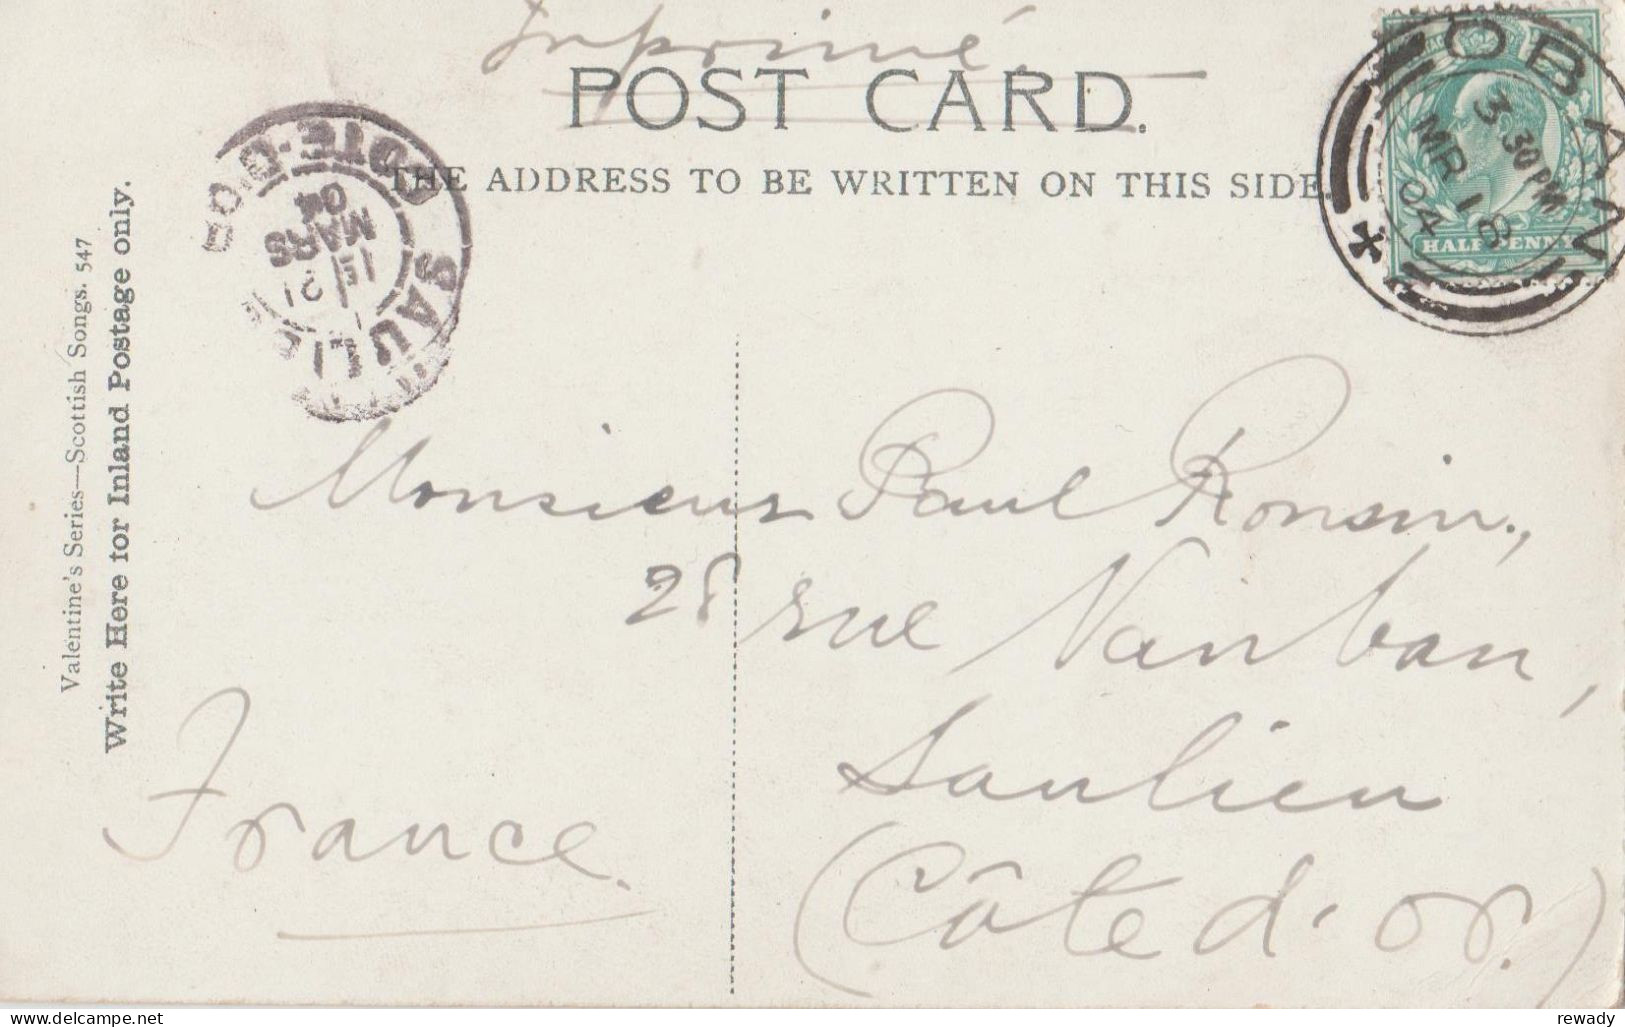 Imprimé
POST CARD.
THE ADDRESS TO BE WRITTEN ON THIS SIDE.
OBAN
3 30 PM
MR 18
04
HALF PENNY
SAULIEU
CÔTE-D'OR
MARS
04
Valentine's Series—Scottish Songs. 547
Write Here for Inland Postage only.
Monsieur Paul Ronsin,
28 rue Vauban,
Saulieu
(Côte d'or.)
France.
rewady